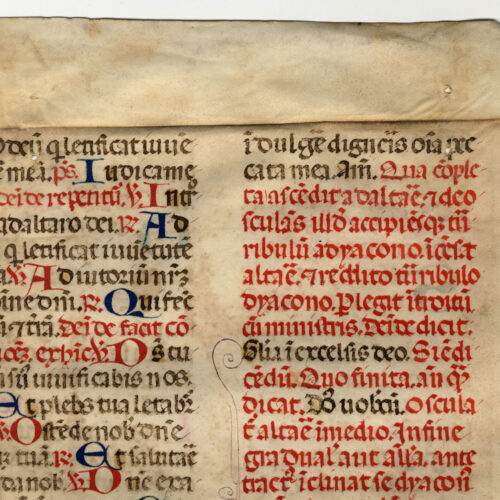 deũ q̃ letificat iuuẽ
ẽ meã. ps. Iudica me
dei de repetitũ. V. Intr
ad altaro dei. R. Ad
q̃ letificat iuuẽtutẽ
V. Adiutorium nr̃ȝ
ine dñi. R. Qui fec
⁊ t̃rã. Deĩde facit cõ
V. Ds tu
uiuificabis nos.
Et plebs tua letabr̃
V. Ostẽde nob dñe
tuã. R. Et salutarẽ
da nob V. Dñe exa
ĩdulgẽ dignẽis oĩa pec
cata mea. Am̃. Qua cõple
ta ascẽdit ad altaẽ. ⁊ deo
sculãs illð accipiẽsqꝫ tũ
ribulũ a dyacono. ĩcẽsat
altaẽ. ⁊ reddito tũribulo
dyacono. P̃legit ĩtroitũ
cũ ministris. Deĩde dicit.
Glia ĩ excelsis deo. Si ẽ di
cẽdũ. Quo finita. añ qȝ̃
dicat. Dñs uobcũ. Oscula
t̃ altaẽ ĩ medio. In fine
gradual. aut alla. ante
tract̃. ĩclinat se dyacon